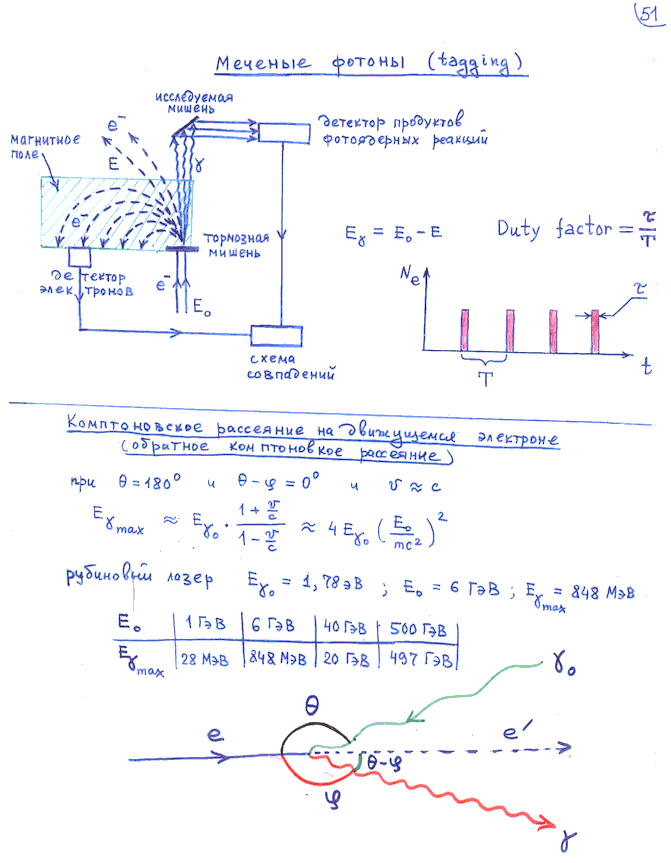 51
Меченые фотоны (tagging)
исследуемая
мишень
e⁻
детектор продуктов
фотоядерных реакций
магнитное
поле
E
γ
e⁻
тормозная
мишень
детектор
электронов
e⁻
E₀
схема
совпадений
E_γ = E₀ - E
Duty factor = τ/T
N_e
τ
T
t
Комптоновское рассеяние на движущемся электроне
(обратное комптоновкое рассеяние)
при θ = 180° и θ - φ = 0° и v ≈ c
E_γmax ≈ E_γ₀ · (1 + v/c)/(1 - v/c) ≈ 4 E_γ₀ (E₀/mc²)²
рубиновый лазер E_γ₀ = 1,78 эВ ; E₀ = 6 ГэВ ; E_γmax = 848 МэВ
E₀ 1 ГэВ 6 ГэВ 40 ГэВ 500 ГэВ
E_γmax 28 МэВ 848 МэВ 20 ГэВ 497 ГэВ
γ₀
θ
e
e′
θ-φ
φ
γ